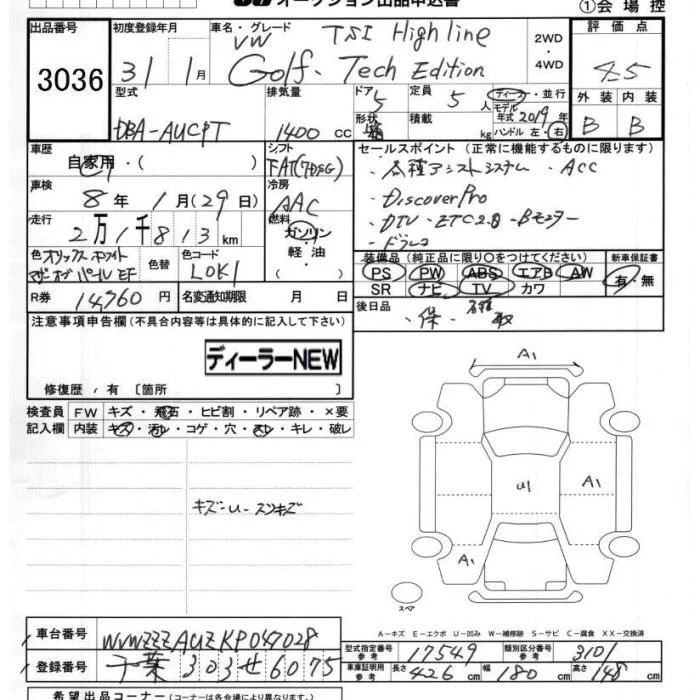 オークション出品申込書
①会場控
出品番号 3036
初度登録年月 31年1月
車名・グレード VW TSI Highline
Golf. Tech Edition
2WD・4WD
評価点 4.5
外装 B 内装 B
型式 DBA-AUCPT
排気量 1400cc
ドア 5
形状 箱
定員 5人
積載 kg
ディーラー・並行
モデル年式 2019年
ハンドル 左・右
車歴 自家用・( )
シフト FAT(7DSG)
セールスポイント (正常に機能するものに限ります)
・各種アシストシステム ・ACC
・Discover Pro
・DTV・ETC2.0・Bモニター
・ドラレコ
車検 8年1月(29日)
冷房 AAC
走行 2万1千813km
燃料 ガソリン・軽油( )
色 オリックスホワイト
マザーオブパールEF
色替
色コード L0K1
装備品 (純正品に限り〇をつけてください)
PS PW ABS エアB AW
SR ナビ TV カワ
新車保証書 有・無
R券 14,760円
名変通知期限 月 日
後日品 ・保・ 取
注意事項申告欄(不具合内容等は具体的に記入して下さい)
ディーラーNEW
修復歴/有〔箇所 〕
検査員記入欄
FW キズ・飛石・ヒビ割・リペア跡・×要
内装 キズ・汚レ・コゲ・穴・スレ・キレ・破レ
キズ-U-スリキズ
A1
A1
U1
A1
A1
スペア
A-キズ E-エクボ U-凹み W-補修跡 S-サビ C-腐食 XX-交換済
車台番号 WVWZZZAUZKP047028
登録番号 千葉 303 せ 6075
型式指定番号参考 17549
類別区分番号参考 3101
車庫証明用参考 長さ 426cm 幅 180cm 高さ 148cm
希望出品コーナー (コーナーは各会場により異なります。)